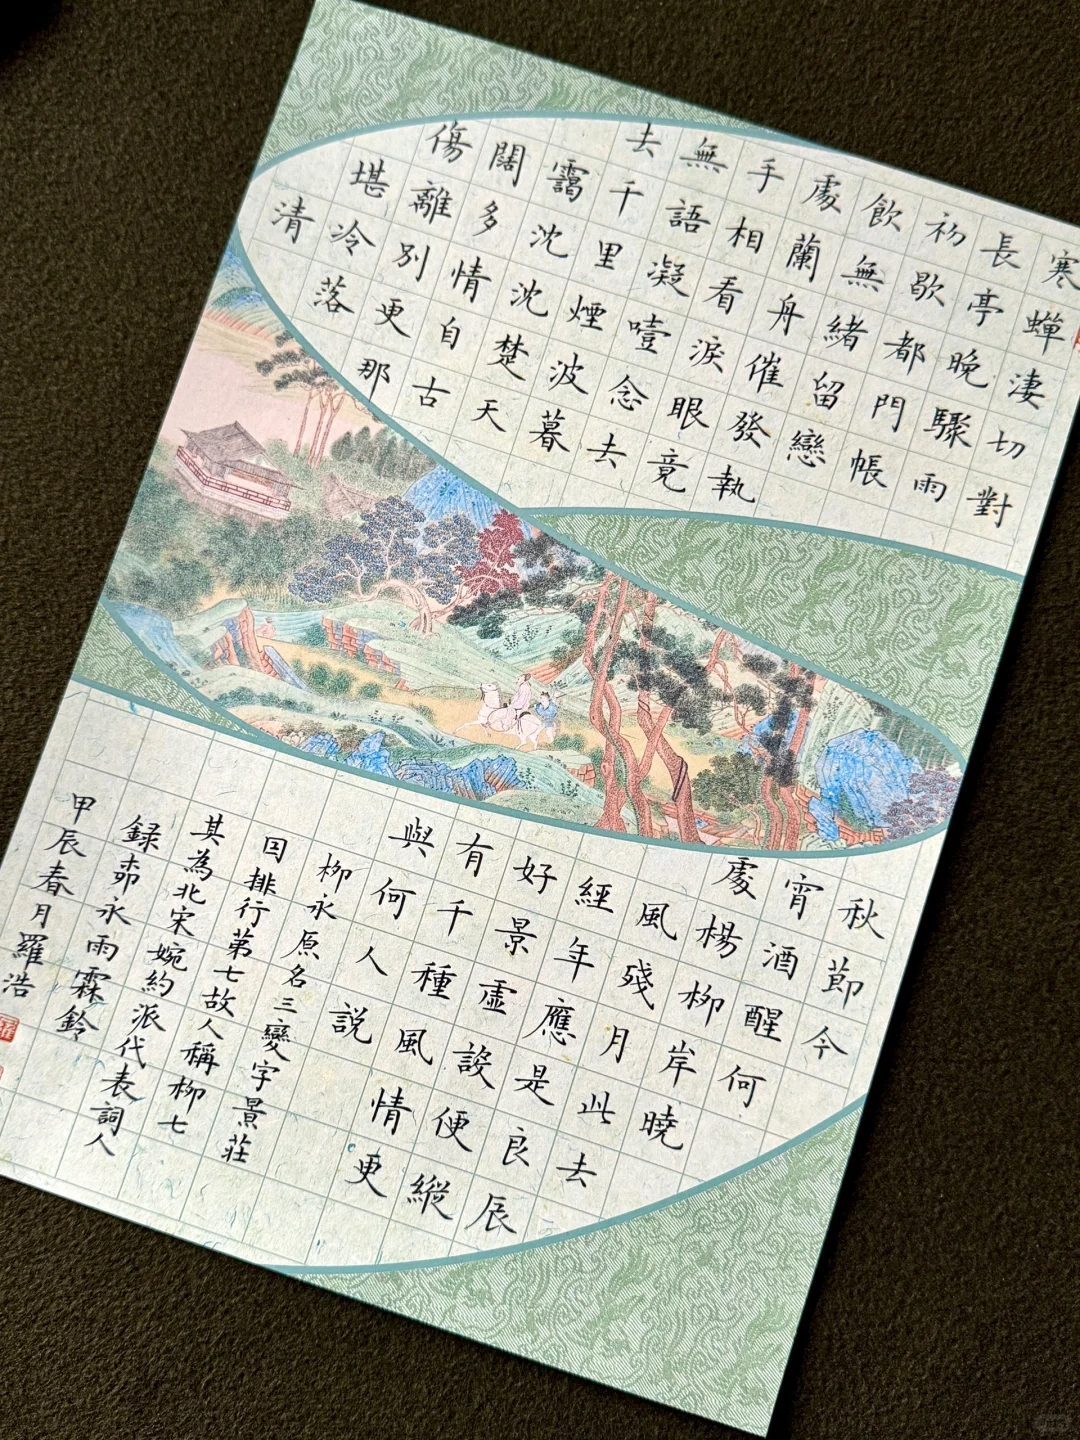 寒蟬淒切對
長亭晚驟雨
初歇都門帳
飲無緒留戀
處蘭舟催發執
手相看淚眼竟
無語凝噎念去
去千里煙波暮
靄沈沈楚天
闊多情自古
傷離別更那
堪冷落
清
秋節今
宵酒醒何
處楊柳岸曉
風殘月此去
經年應是良辰
好景虛設便縱
有千種風情更
與何人説
柳永原名三變字景莊
因排行第七故人稱柳七
其為北宋婉約派代表詞人
録柳永雨霖鈴
甲辰春月羅浩